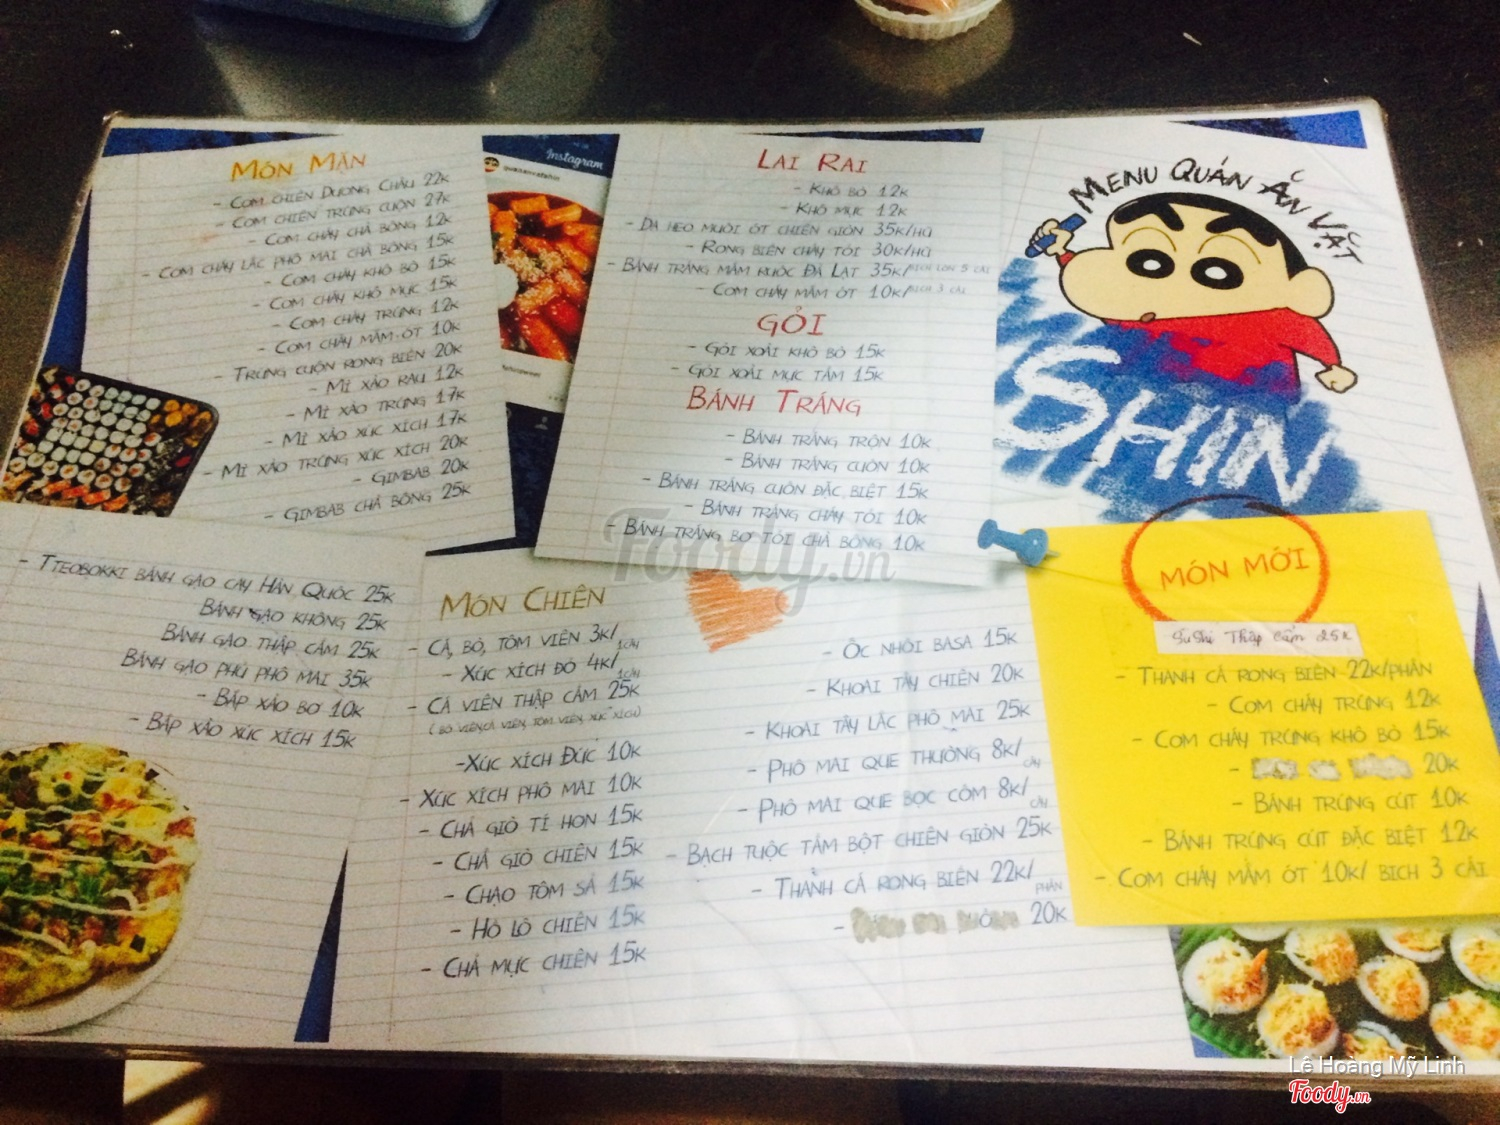 MÓN MẶN
- CƠM CHIÊN DƯƠNG CHÂU 22K
- CƠM CHIÊN TRỨNG CUỘN 27K
- CƠM CHÁY CHÀ BÔNG 12K
- CƠM CHÁY LẮC PHÔ MAI CHÀ BÔNG 15K
- CƠM CHÁY KHÔ BÒ 15K
- CƠM CHÁY KHÔ MỰC 15K
- CƠM CHÁY TRỨNG 12K
- CƠM CHÁY MẮM ỚT 10K
- TRỨNG CUỘN RONG BIỂN 20K
- MÌ XÀO RAU 12K
- MÌ XÀO TRỨNG 17K
- MÌ XÀO XÚC XÍCH 17K
- MÌ XÀO TRỨNG XÚC XÍCH 20K
- GIMBAB 20K
- GIMBAB CHÀ BÔNG 25K
Instagram
LAI RAI
- KHÔ BÒ 12K
- KHÔ MỰC 12K
- DA HEO MUỐI ỚT CHIÊN GIÒN 35K/HŨ
- RONG BIỂN CHÁY TỎI 30K/HŨ
- BÁNH TRÁNG MẮM RUỐC ĐÀ LẠT 35K/BỊCH LỚN 5 CÁI
- CƠM CHÁY MẮM ỚT 10K/BỊCH 3 CÁI
GỎI
- GỎI XOÀI KHÔ BÒ 15K
- GỎI XOÀI MỰC TẨM 15K
BÁNH TRÁNG
- BÁNH TRÁNG TRỘN 10K
- BÁNH TRÁNG CUỘN 10K
- BÁNH TRÁNG CUỘN ĐẶC BIỆT 15K
- BÁNH TRÁNG CHÁY TỎI 10K
- BÁNH TRÁNG BƠ TỎI CHÀ BÔNG 10K
MENU QUÁN ĂN VẶT
SHIN
- TTEOBOKKI BÁNH GẠO CAY HÀN QUỐC 25K
BÁNH GẠO KHÔNG 25K
BÁNH GẠO THẬP CẨM 25K
BÁNH GẠO PHỦ PHÔ MAI 35K
- BẮP XÀO BƠ 10K
- BẮP XÀO XÚC XÍCH 15K
MÓN CHIÊN
- CÁ, BÒ, TÔM VIÊN 3K/1CÂY
- XÚC XÍCH ĐỎ 4K/1CÂY
- CÁ VIÊN THẬP CẨM 25K
( BÒ VIÊN, CÁ VIÊN, TÔM VIÊN, XÚC XÍCH)
-XÚC XÍCH ĐỨC 10K
- XÚC XÍCH PHÔ MAI 10K
- CHẢ GIÒ TÍ HON 15K
- CHẢ GIÒ CHIÊN 15K
- CHẠO TÔM SẢ 15K
- HỒ LÔ CHIÊN 15K
- CHẢ MỰC CHIÊN 15K
- ỐC NHỒI BASA 15K
- KHOAI TÂY CHIÊN 20K
- KHOAI TÂY LẮC PHÔ MAI 25K
- PHÔ MAI QUE THƯỜNG 8K/CÂY
- PHÔ MAI QUE BỌC CỐM 8K/CÂY
- BẠCH TUỘC TẨM BỘT CHIÊN GIÒN 25K
- THANH CÁ RONG BIỂN 22K/PHẦN
- 20K
MÓN MỚI
Sushi Thập Cẩm 25K
- THANH CÁ RONG BIỂN 22K/PHẦN
- CƠM CHÁY TRỨNG 12K
- CƠM CHÁY TRỨNG KHÔ BÒ 15K
- 20K
- BÁNH TRỨNG CÚT 10K
- BÁNH TRỨNG CÚT ĐẶC BIỆT 12K
- CƠM CHÁY MẮM ỚT 10K/ BỊCH 3 CÁI
Foody.vn
Lê Hoàng Mỹ Linh
Foody.vn